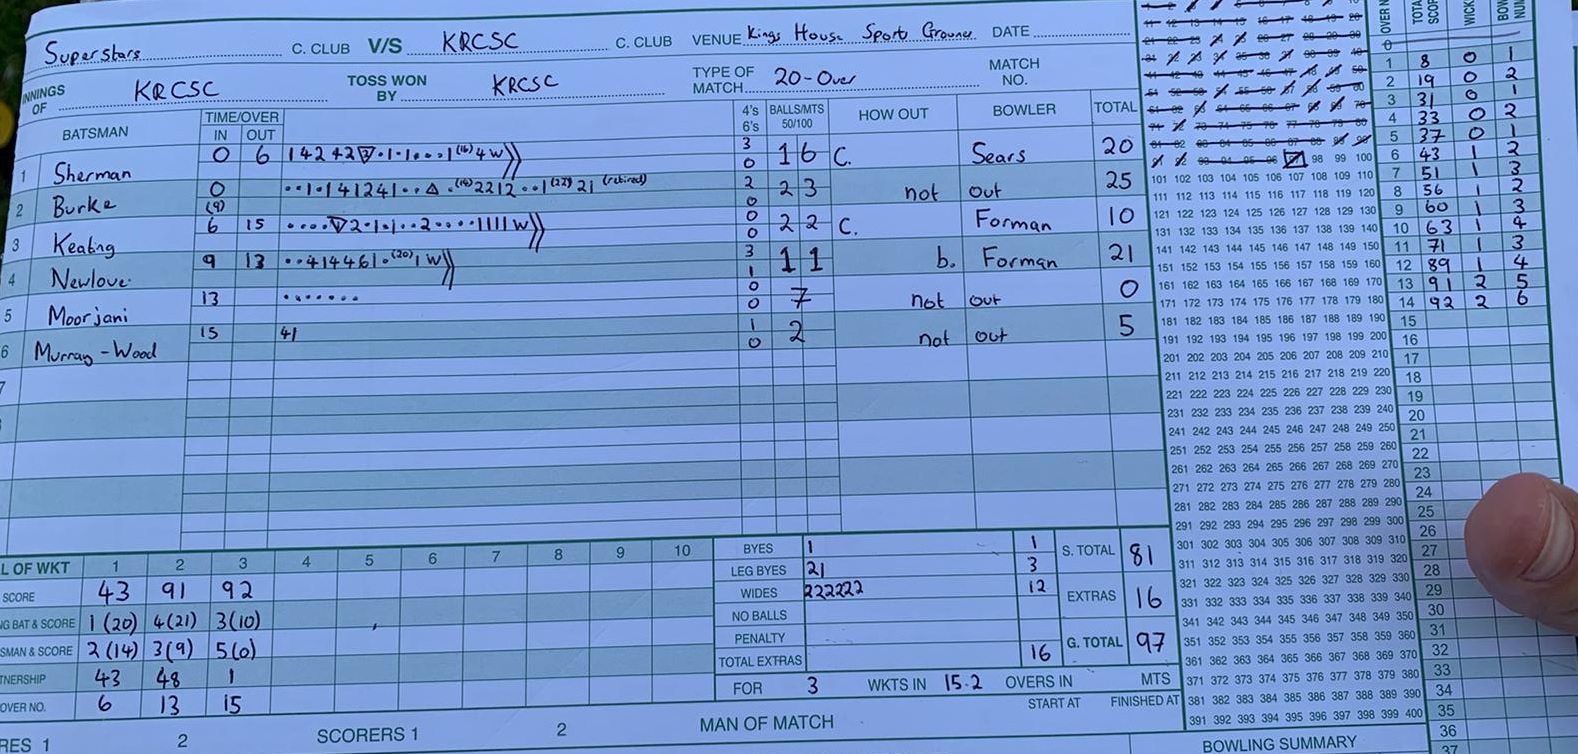 Superstars C. CLUB V/S KRCSC C. CLUB VENUE Kings House Sports Ground DATE
INNINGS OF KRCSC TOSS WON BY KRCSC TYPE OF MATCH 20-Over MATCH NO.
BATSMAN TIME/OVER IN OUT 4's 6's BALLS/MTS 50/100 HOW OUT BOWLER TOTAL
1 Sherman 0 6 3 0 16 C. Sears 20
2 Burke 0 (9) (retired) 2 0 23 not out 25
3 Keating 6 15 0 0 22 C. Forman 10
4 Newlove 9 13 3 1 11 b. Forman 21
5 Moorjani 13 ....... 0 0 7 not out 0
6 Murray-Wood 15 41 1 0 2 not out 5
7
L OF WKT 1 2 3 4 5 6 7 8 9 10
SCORE 43 91 92
NG BAT & SCORE 1 (20) 4 (21) 3 (10)
SMAN & SCORE 2 (14) 3 (9) 5 (0)
TNERSHIP 43 48 1
OVER NO. 6 13 15
BYES 1 1
LEG BYES 21 3
WIDES 222222 12
NO BALLS
PENALTY
TOTAL EXTRAS 16
S. TOTAL 81
EXTRAS 16
G. TOTAL 97
FOR 3 WKTS IN 15.2 OVERS IN MTS
START AT FINISHED AT
RES 1 2 SCORERS 1 2 MAN OF MATCH
BOWLING SUMMARY
98 99 100
101 102 103 104 105 106 107 108 109 110
111 112 113 114 115 116 117 118 119 120
121 122 123 124 125 126 127 128 129 130
131 132 133 134 135 136 137 138 139 140
141 142 143 144 145 146 147 148 149 150
151 152 153 154 155 156 157 158 159 160
161 162 163 164 165 166 167 168 169 170
171 172 173 174 175 176 177 178 179 180
181 182 183 184 185 186 187 188 189 190
191 192 193 194 195 196 197 198 199 200
201 202 203 204 205 206 207 208 209 210
211 212 213 214 215 216 217 218 219 220
221 222 223 224 225 226 227 228 229 230
231 232 233 234 235 236 237 238 239 240
241 242 243 244 245 246 247 248 249 250
251 252 253 254 255 256 257 258 259 260
261 262 263 264 265 266 267 268 269 270
271 272 273 274 275 276 277 278 279 280
281 282 283 284 285 286 287 288 289 290
291 292 293 294 295 296 297 298 299 300
301 302 303 304 305 306 307 308 309 310
311 312 313 314 315 316 317 318 319 320
321 322 323 324 325 326 327 328 329 330
331 332 333 334 335 336 337 338 339 340
341 342 343 344 345 346 347 348 349 350
351 352 353 354 355 356 357 358 359 360
361 362 363 364 365 366 367 368 369 370
371 372 373 374 375 376 377 378 379 380
381 382 383 384 385 386 387 388 389 390
391 392 393 394 395 396 397 398 399 400
OVER N TOTAL SCOR WICK BOW NUM
0
1 8 0 1
2 19 0 2
3 31 0 1
4 33 0 2
5 37 0 1
6 43 1 2
7 51 1 3
8 56 1 2
9 60 1 3
10 63 1 4
11 71 1 3
12 89 1 4
13 91 2 5
14 92 2 6
15
16
17
18
19
20
21
22
23
24
25
26
27
28
29
30
31
32
33
34
35
36
37